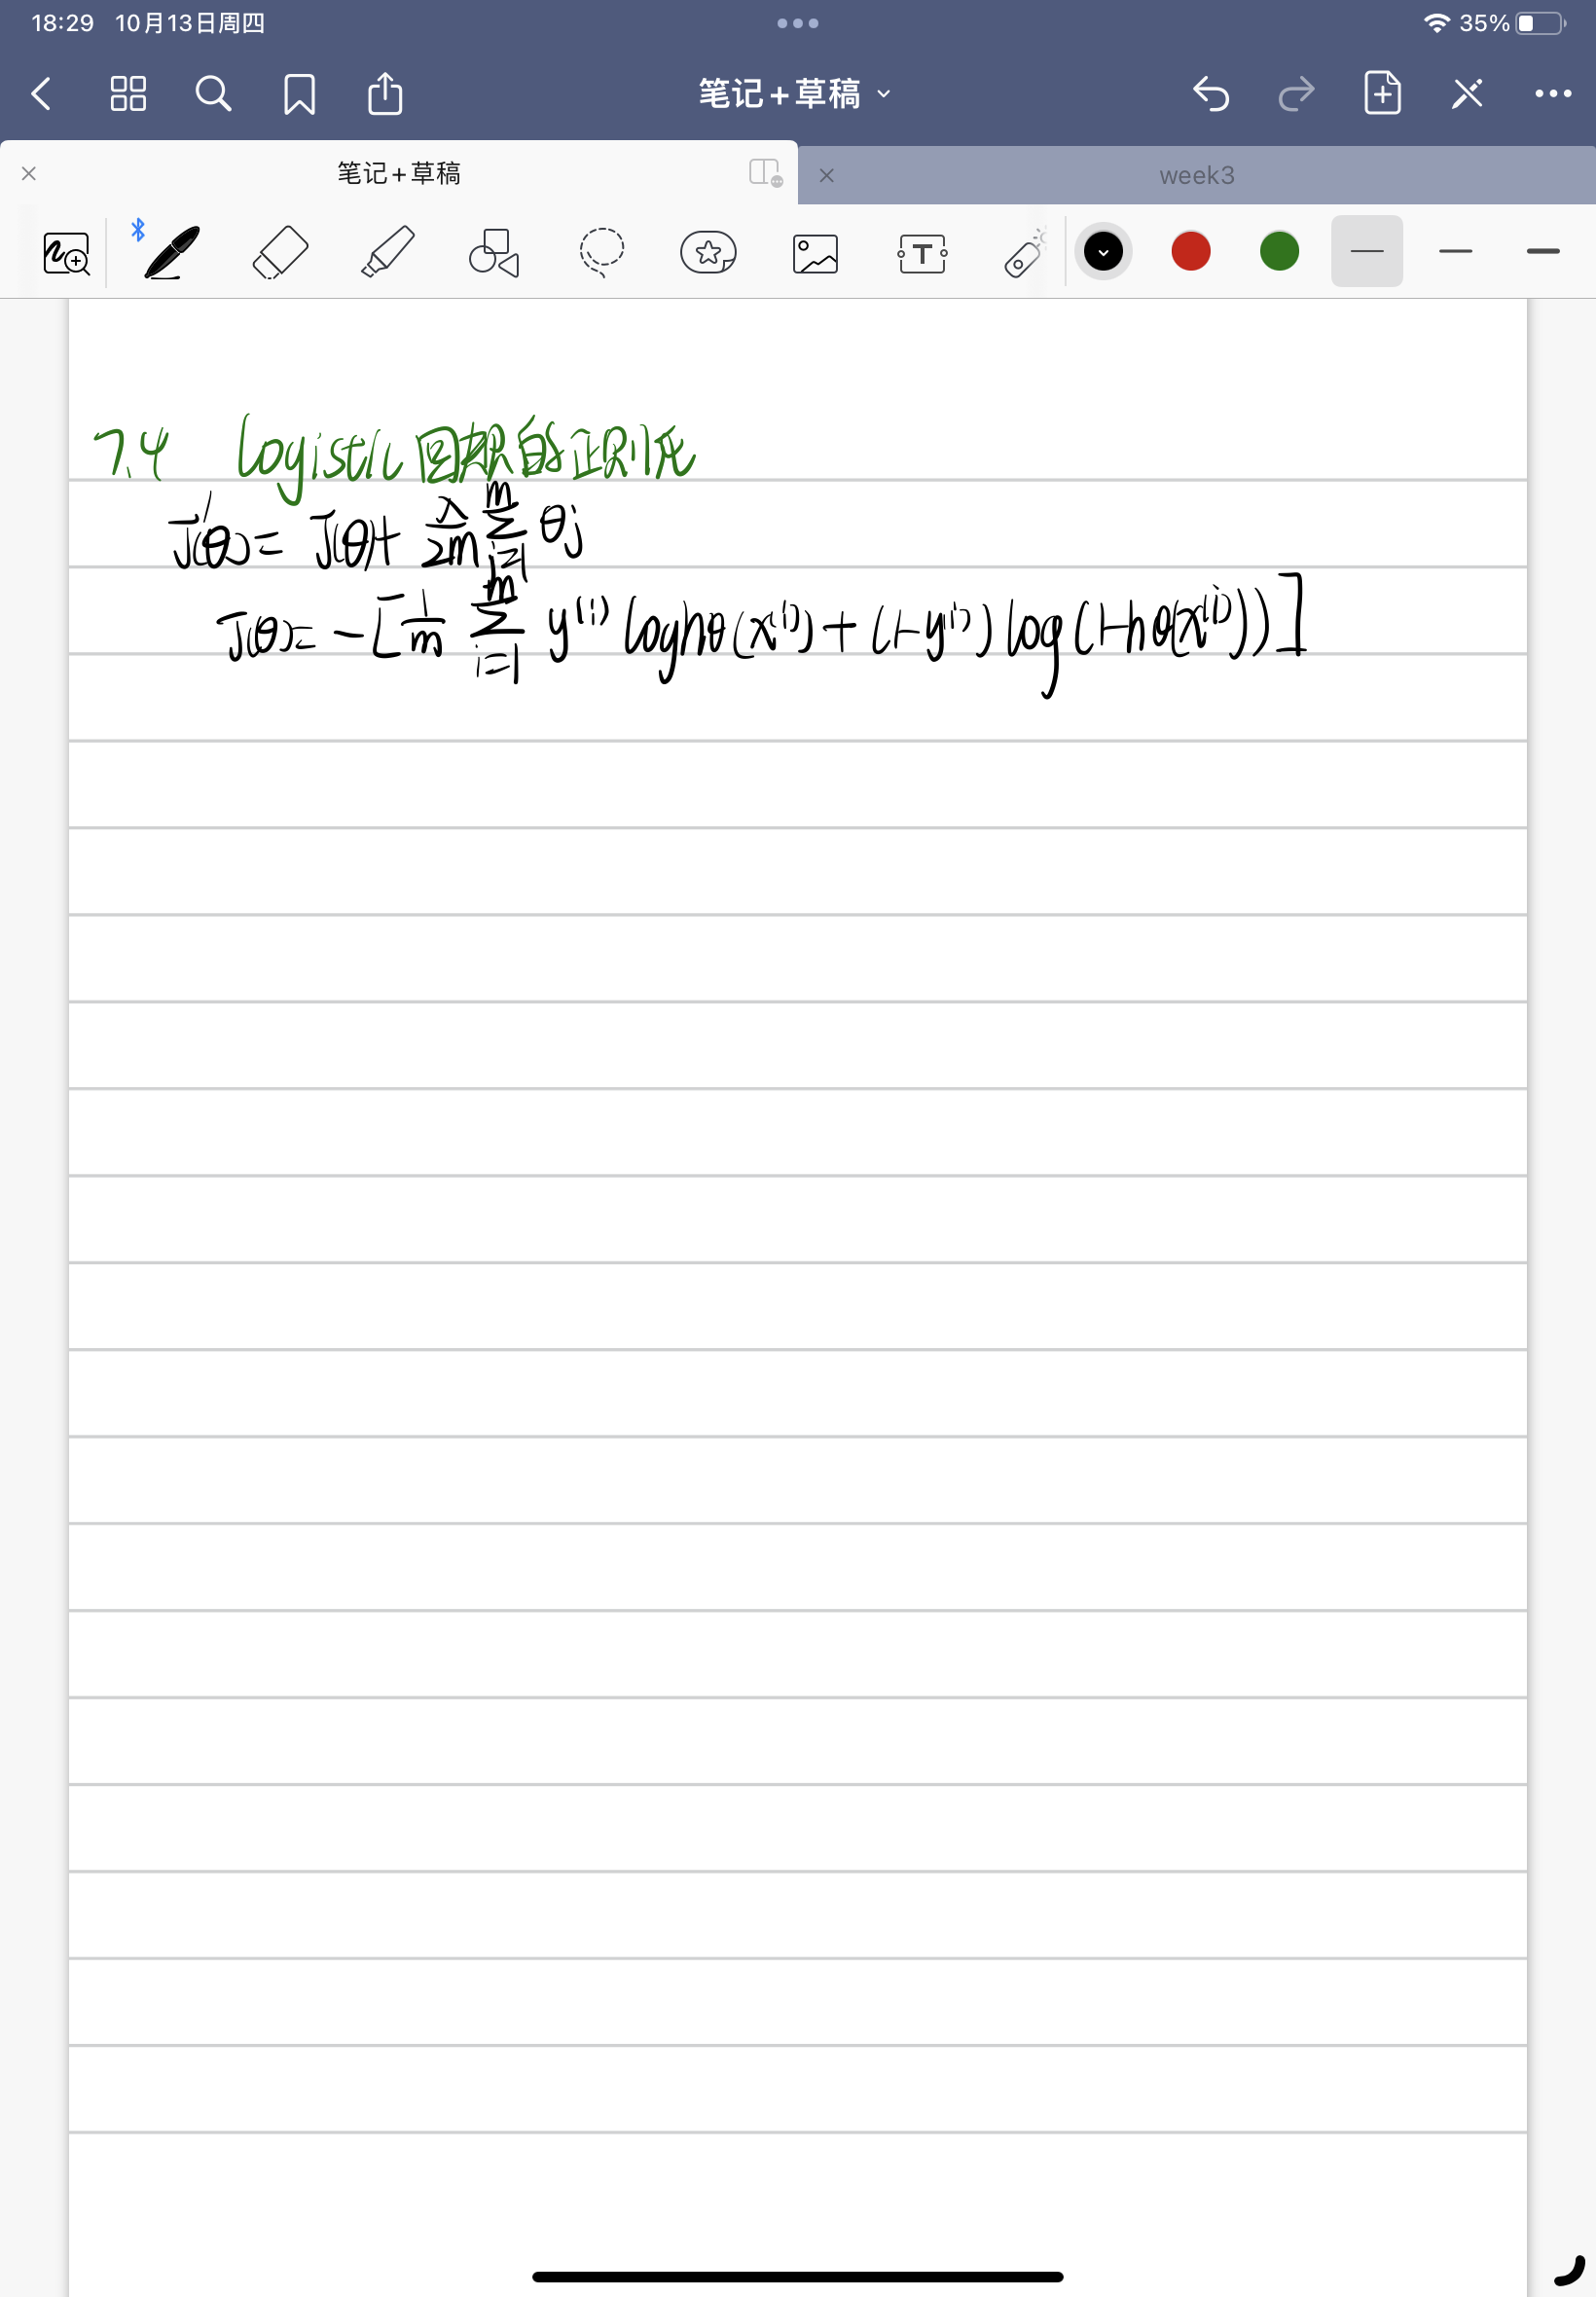 18:29 10月13日周四 35%
笔记+草稿
笔记+草稿 week3
7.4 Logistic 回归的正则化
J'(θ) = J(θ) + λ/2m ∑_{j=1}^{m} θj
J(θ) = -[1/m ∑_{i=1}^{m} y⁽ⁱ⁾ log hθ(x⁽ⁱ⁾) + (1-y⁽ⁱ⁾) log(1-hθ(x⁽ⁱ⁾))]